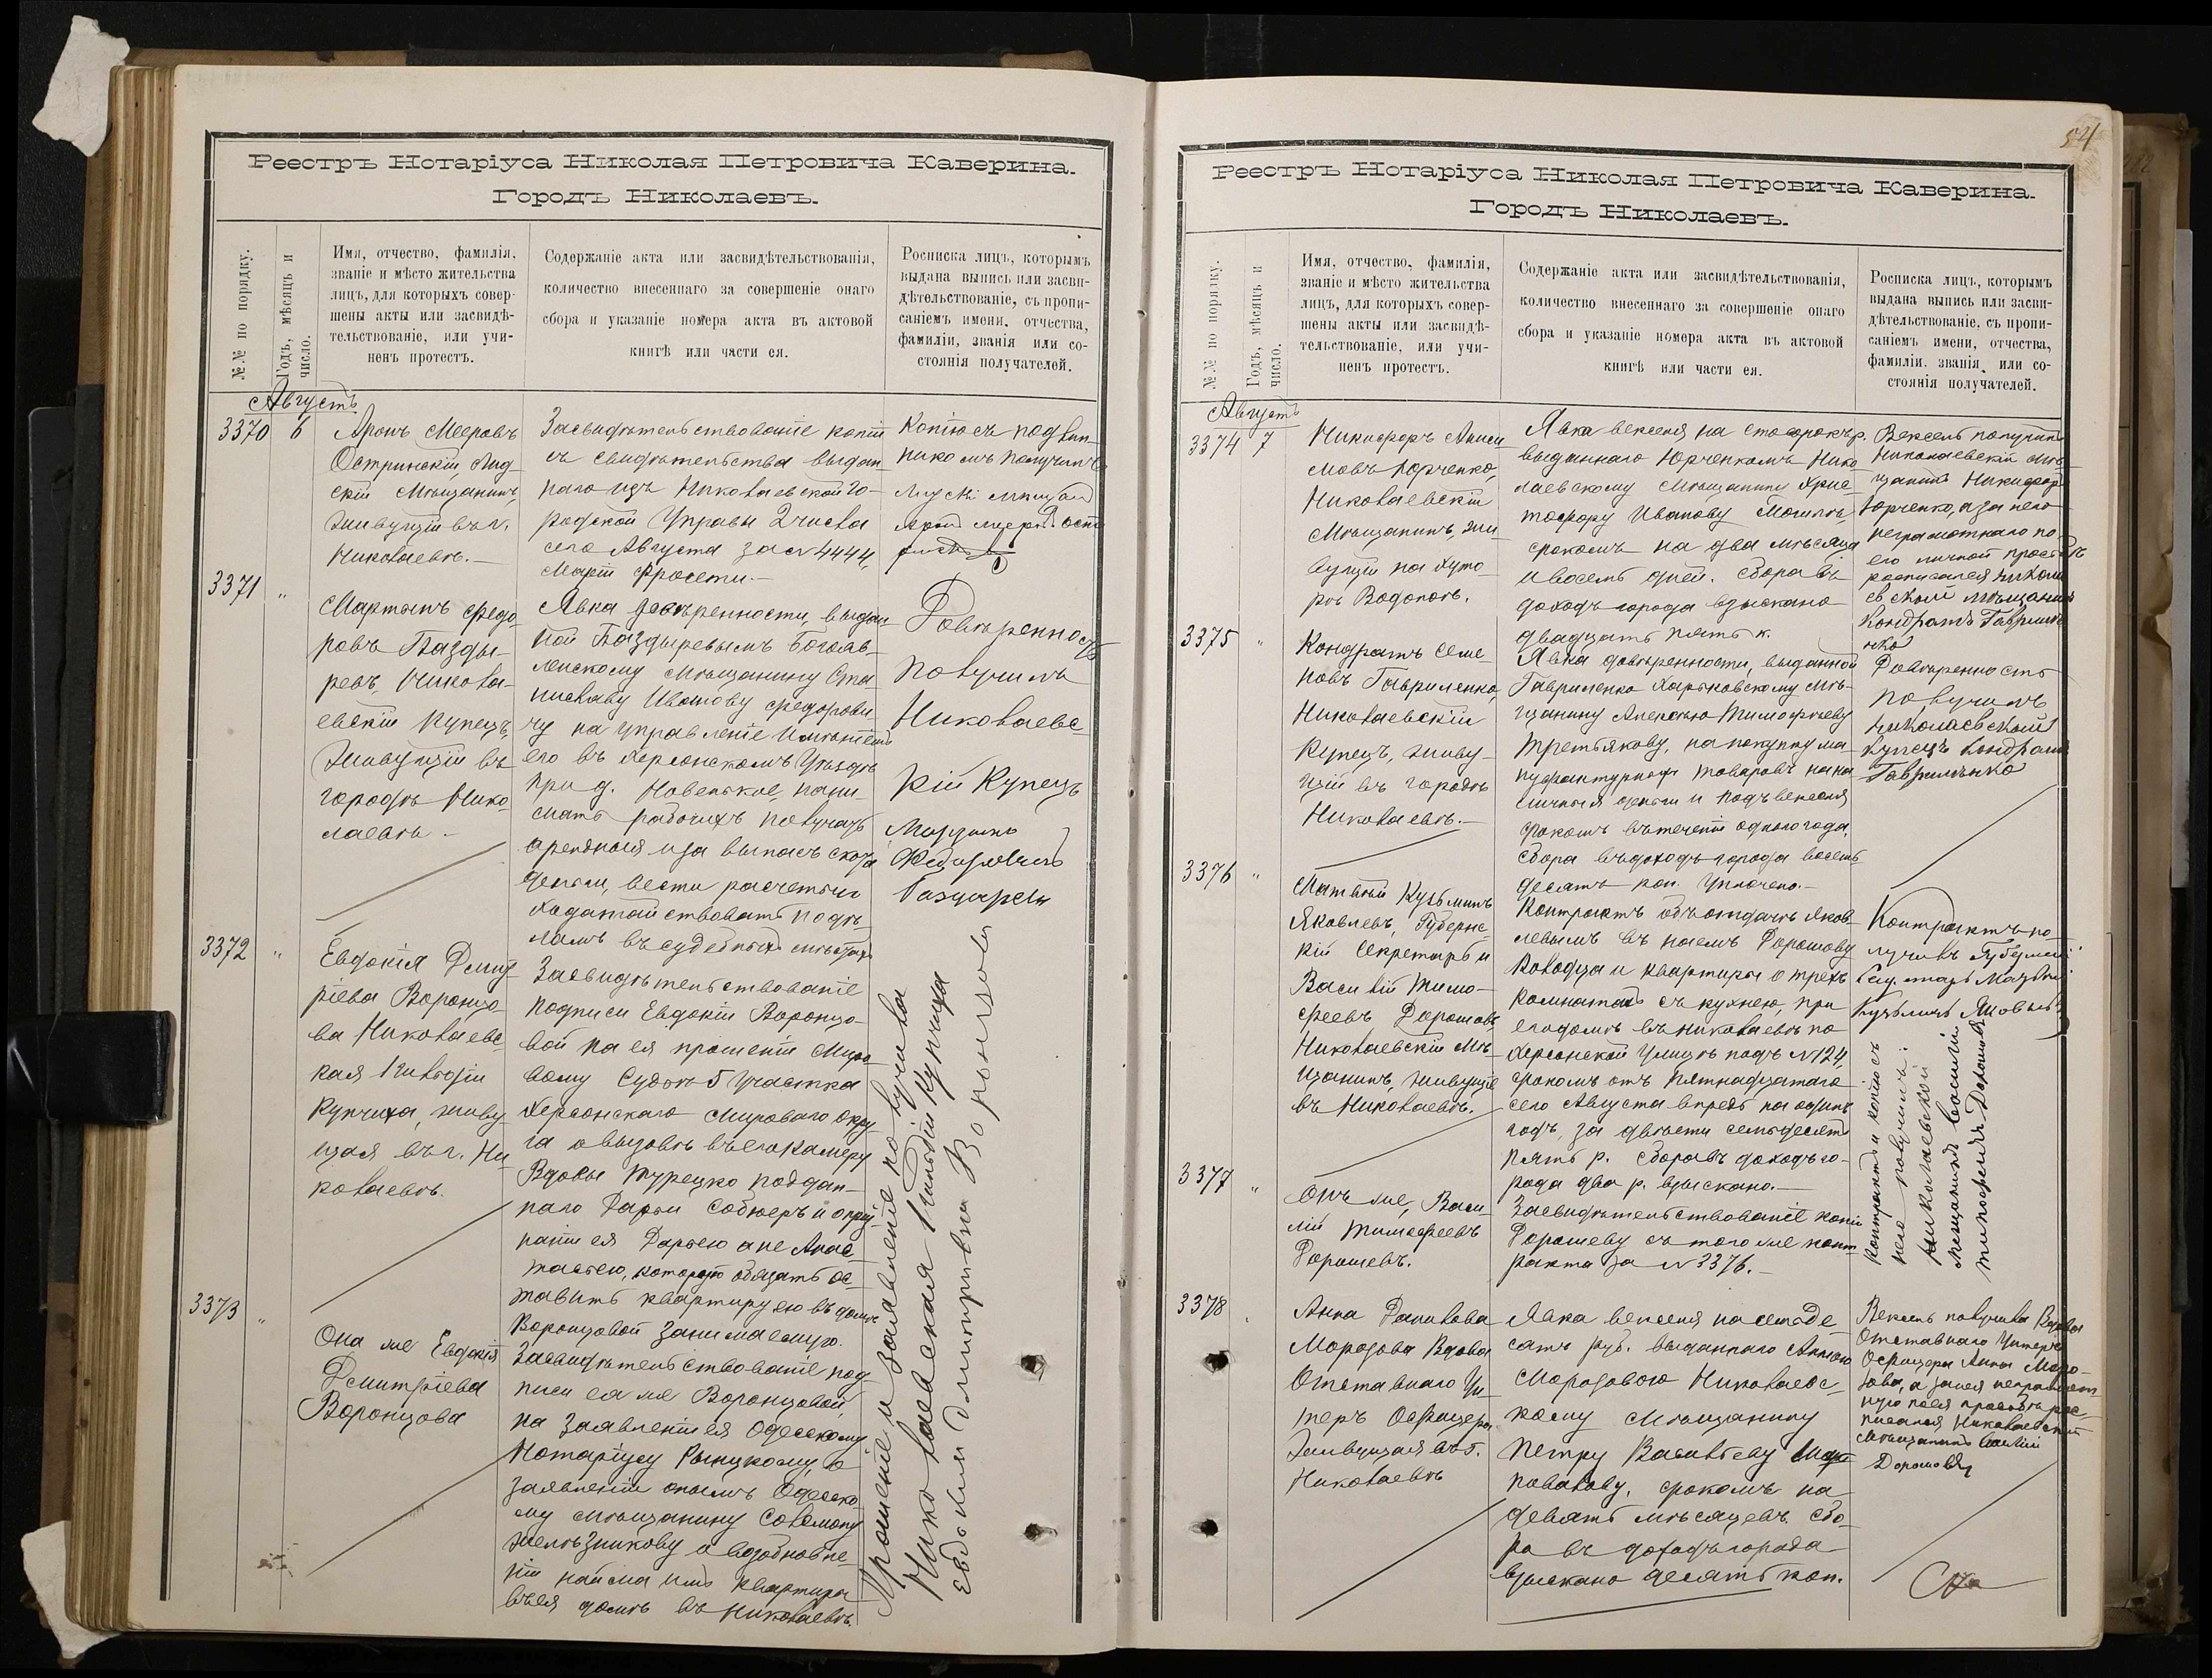 Реестръ Нотаріуса Николая Петровича Каверина.
Городъ Николаевъ.
№№ по порядку.
Годъ, мѣсяцъ и
число.
Имя, отчество, фамилія,
званіе и мѣсто жительства
лицъ, для которыхъ совер-
шены акты или засвидѣ-
тельствованіе, или учи-
ненъ протестъ.
Содержаніе акта или засвидѣтельствованія,
количество внесеннаго за совершеніе онаго
сбора и указаніе номера акта въ актовой
книгѣ или части ея.
Росписка лицъ, которымъ
выдана выпись или засви-
дѣтельствованіе, съ пропи-
саніемъ имени, отчества,
фамиліи, званія или со-
стоянія получателей.
Августъ
3370 6
Аронъ Мееровъ
Остринскій, Лид-
скій Мѣщанинъ,
живущій въ г.
Николаевѣ.—
Засвидѣтельствованіе копіи
съ свидѣтельства выдан-
наго изъ Николаевской Го-
родской Управы 2 числа
сего Августа за № 4444,
Маріи
Копію съ подлин-
никомъ получилъ
3371 "
Мартынъ Федо-
ровъ Пазды-
ревъ, Никола-
евскій Купецъ,
живущій въ
городѣ Нико-
лаевѣ.—
Явка довѣренности, выдан-
ной Паздыревымъ Богояв-
ленскому Мѣщанину Ста-
ниславу Иванову Федорови-
чу на управленіе имѣніемъ
его въ Херсонскомъ Уѣздѣ
при д. Новенькое, нани-
мать рабочихъ получать
арендныя и за выпасъ скота
деньги, вести расчеты и
ходатайствовать по дѣ-
ламъ въ судебныхъ мѣстахъ
Довѣренность
получилъ
Николаевс
кій Купецъ
Мартынъ
3372 "
Евдокія Дмит-
ріева Воронцо-
ва Николаевс-
кая 1 Гильдіи
Купчиха, живу-
щая въ г. Ни-
колаевѣ.
Засвидѣтельствованіе
подписи Евдокіи Воронцо-
вой на ея прошеніи Миро-
вому Судьѣ 5 участка
Херсонскаго Мироваго Окру-
га о вызовѣ въ его камеру
Вдовы Турецко поддан-
наго Дарьи
ея Дарьею а не Анас-
тасьею, которую обязать ос-
тавить квартиру ею въ домѣ
Воронцовой занимаемую.
3373 "
Она же Евдокія
Дмитріева
Воронцова
Засвидѣтельствованіе под-
писи ея же Воронцовой,
на заявленіи ея Одесскому
Нотаріусу о
заявленіи онымъ Одесско-
му Мѣщанину Соломону
Желѣзникову о возобновле-
ніи найма имъ квартиры
въ ея домѣ въ Николаевѣ.
Прошеніе и заявленіе получила
Николаевская 1 гильдіи Купчиха
Евдокія Дмитріевна Воронцова
54
Реестръ Нотаріуса Николая Петровича Каверина.
Городъ Николаевъ.
№№ по порядку.
Годъ, мѣсяцъ и
число.
Имя, отчество, фамилія,
званіе и мѣсто жительства
лицъ, для которыхъ совер-
шены акты или засвидѣ-
тельствованіе, или учи-
ненъ протестъ.
Содержаніе акта или засвидѣтельствованія,
количество внесеннаго за совершеніе онаго
сбора и указаніе номера акта въ актовой
книгѣ или части ея.
Росписка лицъ, которымъ
выдана выпись или засви-
дѣтельствованіе, съ пропи-
саніемъ имени, отчества,
фамиліи, званія или со-
стоянія получателей.
Августъ
3374 7
Никифоръ Аниси-
мовъ Юрченко,
Николаевскій
Мѣщанинъ, жи-
вущій на Хуто-
рѣ Водопоѣ.
Явка векселя на сто сорокъ р.
выданнаго Юрченкомъ Нико-
лаевскому Мѣщанину Хрис-
тофору Иванову
срокомъ на два мѣсяца
и восемь дней. Сбора въ
доходъ города взыскано
двадцать пять к.
Вексель получилъ
Николаевскій Мѣ-
щанинъ Никифоръ
Юрченко, а за него
неграмотнаго по
его личной просьбѣ
росписался Никола
евскій мѣщанинъ
Кондратъ Гаврилен
нко
3375 "
Кондратъ Семе-
новъ Гавриленко,
Николаевскій
Купецъ, живу-
щій въ городѣ
Николаевѣ.—
Явка довѣренности, выданной
Гавриленко Харьковскому Мѣ-
щанину Алексѣю Тимофѣеву
Третьякову, на покупку ма-
нуфактурныхъ товаровъ на на-
личныя деньги и подъ векселя
срокомъ въ теченіи одного года.
Сбора въ доходъ города восемь
десятъ коп. уплочено.—
Довѣренность
получилъ
николаевской
купецъ Кондратъ
Гавриленко
3376 "
Матвѣй Кузьминъ
Яковлевъ, Губернс-
кій Секретарь и
Василій Тимо-
феевъ Дорошевъ,
Николаевскій Мѣ-
щанинъ, живущіе
въ Николаевѣ.
Контрактъ объ отдачѣ Яков-
левымъ въ наемъ Дорошеву
колодца и квартиры о трехъ
комнатахъ съ кухнею, при
его домѣ въ Николаевѣ по
Херсонской улицѣ подъ № 124,
срокомъ отъ пятнадцатаго
сего Августа впредь на одинъ
годъ, за двѣсти семьдесятъ
пять р. Сбора въ доходъ го-
рода два р. взыскано.—
Контрактъ по-
лучилъ Губернскій
Матвѣй
3377 "
Онъ же, Васи-
лій Тимофеевъ
Дорошевъ.
Засвидѣтельствованіе копіи
Дорошеву съ того же конт-
ракта за № 3376.—
Контрактъ и копію съ
него получилъ:
Николаевской
мещанинъ Василій
Тимофеевъ Дорошевъ
3378 "
Анна Данилова
Морозова Вдова
Отставнаго Ун-
теръ Офицера,
живущая въ г.
Николаевѣ
Явка векселя на семьде-
сятъ руб. выданнаго Анною
Морозовою Николаевс-
кому Мѣщанину
Петру Васильеву
срокомъ на
девять мѣсяцевъ. Сбо-
ра въ доходъ города
взыскано десять коп.
Вексель получила Вдова
Отставнаго Унтеръ
Офицера Анна Моро-
зова, а за нея неграмот-
ную по ея просьбѣ рос-
писался Николаевскій
Мѣщанинъ Василій
Дорошевъ